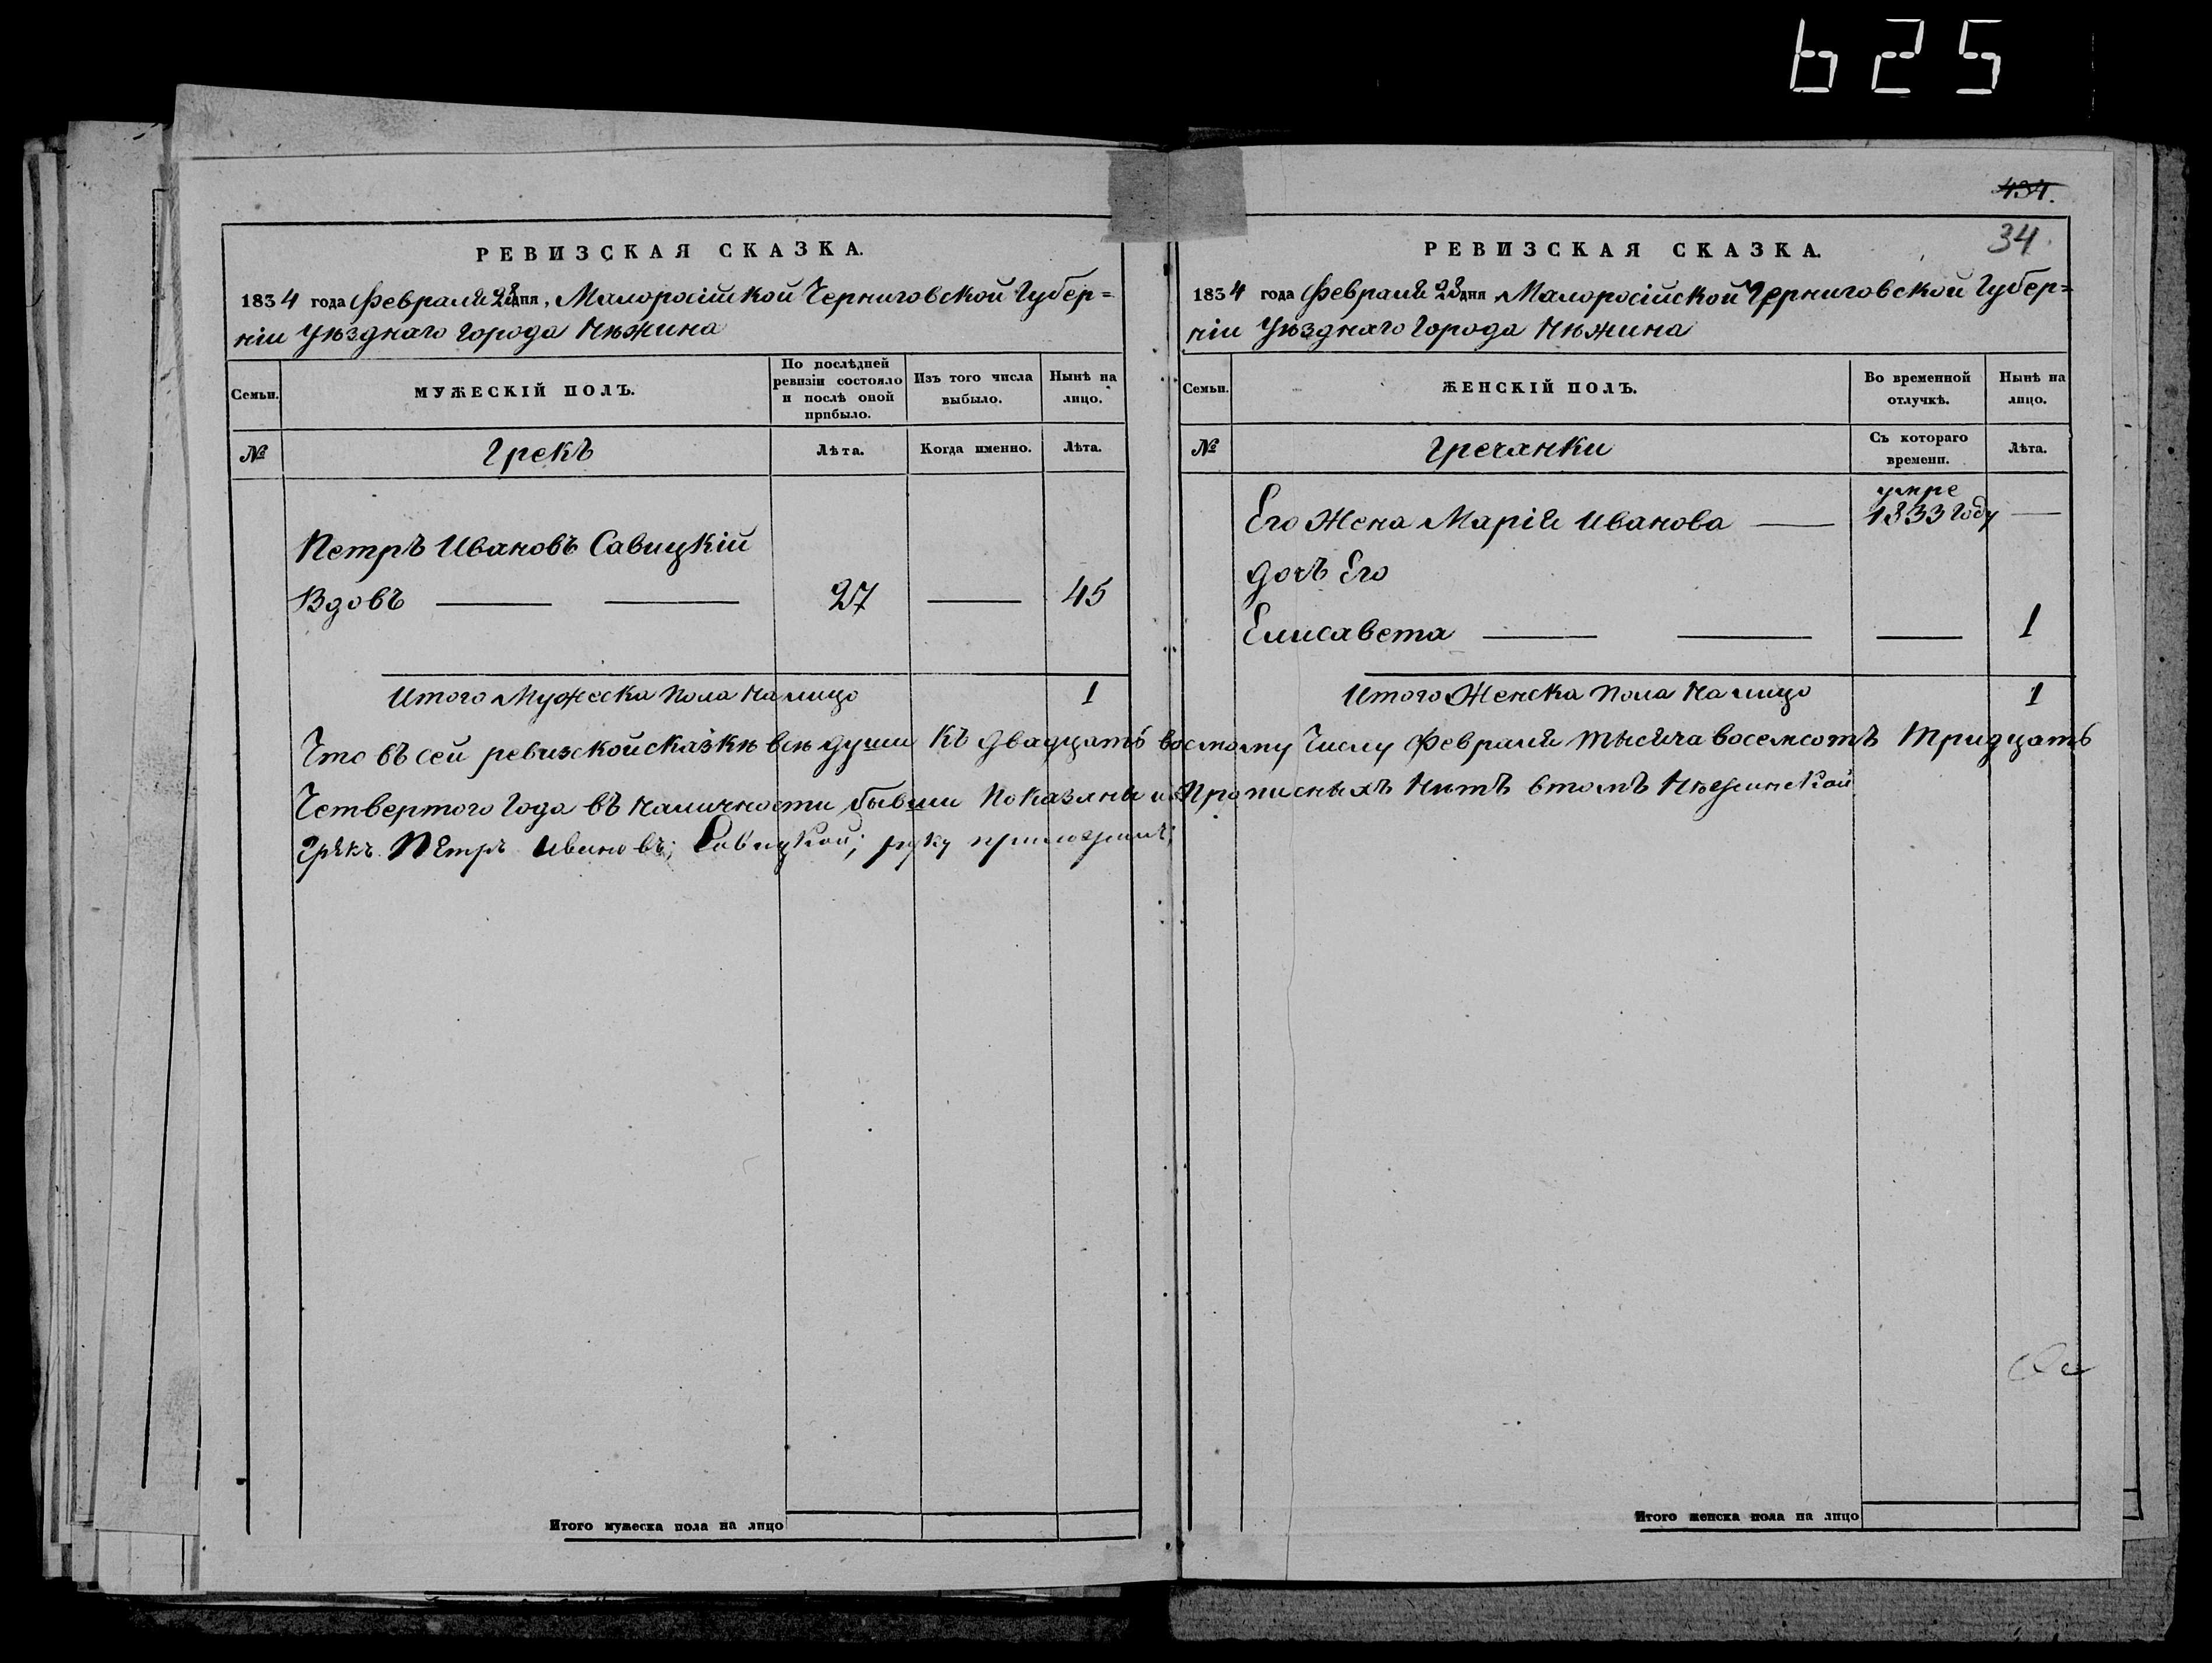 625
434.
34.
РЕВИЗСКАЯ СКАЗКА.
1834 года Февраля 28 дня, Малоросійской Черниговской Губер=
ніи Уѣзднаго города Нѣжина
Семьи.
МУЖЕСКІЙ ПОЛЪ.
По послѣдней
ревизіи состояло
и послѣ оной
прибыло.
Изъ того числа
выбыло.
Нынѣ на
лицо.
№
Грекъ
Лѣта.
Когда именно.
Лѣта.
Петръ Ивановъ Савицкій
Вдовъ — — 27 — 45
Итого Мужеска пола на лицо 1
РЕВИЗСКАЯ СКАЗКА.
1834 года Февраля 28 дня Малоросійской Черниговской Губер=
ніи Уѣзднаго города Нѣжина
Семьи.
ЖЕНСКІЙ ПОЛЪ.
Во временной
отлучкѣ.
Нынѣ на
лицо.
№
Гречанки
Съ котораго
времени.
Лѣта.
Его Жена Марія Иванова — умре 1833 году —
дочъ Его
Елисавета — — — 1
Итого Женска пола на лицо 1
Что въ сей ревизской сказкѣ всѣ души къ двадцать восмому числу Февраля тысяча восемсотъ тридцать
Четвертого года въ наличности бывши показаны и прописныхъ нитъ втомъ Нѣжинской
грѣкъ Пѣтръ Ивановъ; Савицкой; руку приложилъ;
Итого мужеска пола на лицо
Итого женска пола на лицо